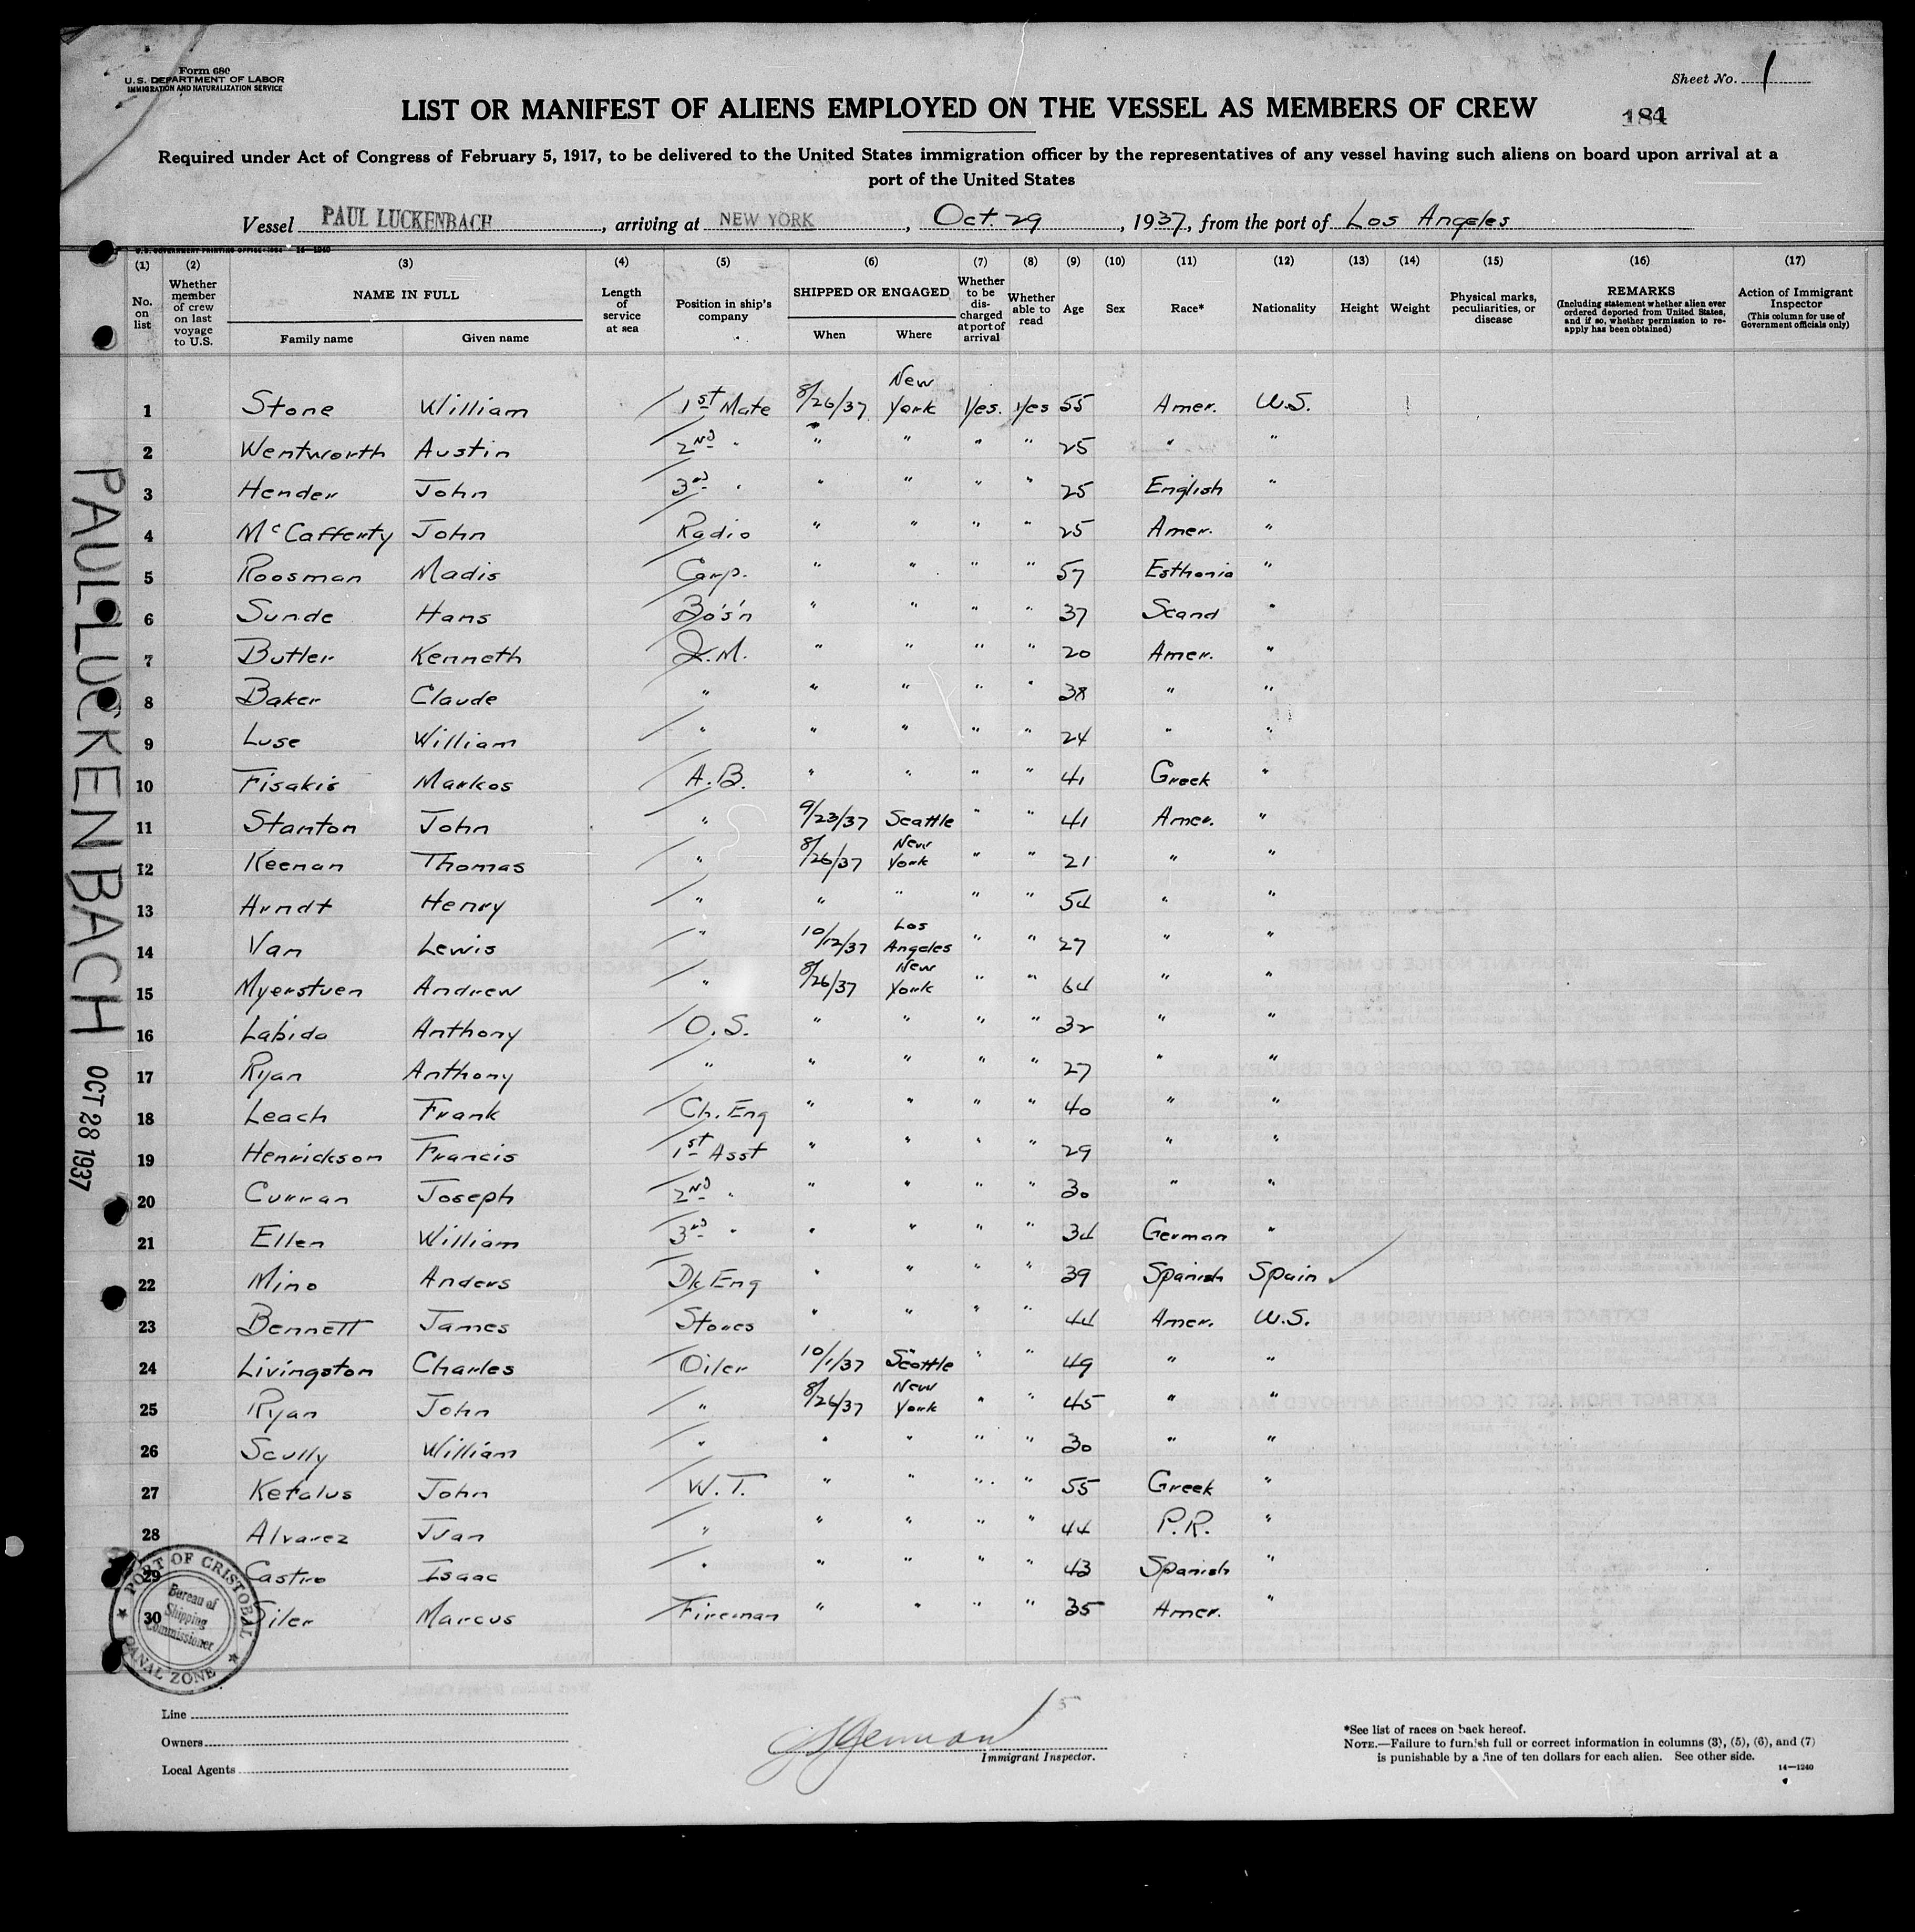 Form 680
U.S. DEPARTMENT OF LABOR
IMMIGRATION AND NATURALIZATION SERVICE
Sheet No. 1
LIST OR MANIFEST OF ALIENS EMPLOYED ON THE VESSEL AS MEMBERS OF CREW
184
Required under Act of Congress of February 5, 1917, to be delivered to the United States immigration officer by the representatives of any vessel having such aliens on board upon arrival at a
port of the United States
Vessel PAUL LUCKENBACH, arriving at NEW YORK, Oct. 29, 1937, from the port of Los Angeles
(1) (2) (3) (4) (5) (6) (7) (8) (9) (10) (11) (12) (13) (14) (15) (16) (17)
No. on list
Whether member of crew on last voyage to U.S.
NAME IN FULL
Family name Given name
Length of service at sea
Position in ship's company
SHIPPED OR ENGAGED
When Where
Whether to be discharged at port of arrival
Whether able to read
Age
Sex
Race*
Nationality
Height
Weight
Physical marks, peculiarities, or disease
REMARKS
(Including statement whether alien ever ordered deported from United States, and if so, whether permission to reapply has been obtained)
Action of Immigrant Inspector
(This column for use of Government officials only)
1 Stone William 1st Mate 8/26/37 New York Yes. Yes 55 Amer. U.S.
2 Wentworth Austin 2nd " " " " " 25 " "
3 Hender John 3rd " " " " " 25 English "
4 McCafferty John Radio " " " " 25 Amer. "
5 Roosman Madis Carp. " " " " 57 Esthonia "
6 Sunde Hans Bo's'n " " " " 37 Scand "
7 Butler Kenneth Q.M. " " " " 20 Amer. "
8 Baker Claude " " " " " 38 " "
9 Luse William " " " " " 24 " "
10 Fisakis Markos A.B. " " " " 41 Greek "
11 Stanton John " 9/23/37 Seattle " " 41 Amer. "
12 Keenan Thomas " 8/26/37 New York " " 21 " "
13 Arndt Henry " " " " " 54 " "
14 Van Lewis " 10/12/37 Los Angeles " " 27 " "
15 Myerstuen Andrew " 8/26/37 New York " " 64 " "
16 Labida Anthony O.S. " " " " 32 " "
17 Ryan Anthony " " " " " 27 " "
18 Leach Frank Ch. Eng " " " " 40 " "
19 Henrickson Francis 1st Asst " " " " 29 " "
20 Curran Joseph 2nd " " " " " 30 " "
21 Ellen William 3rd " " " " " 34 German "
22 Mino Anders Dk Eng " " " " 39 Spanish Spain ✓
23 Bennett James Stores " " " " 44 Amer. U.S.
24 Livingston Charles Oiler 10/1/37 Seattle " " 49 " "
25 Ryan John " 8/26/37 New York " " 45 " "
26 Scully William " " " " " 30 " "
27 Ketalus John W.T. " " " " 55 Greek "
28 Alvarez Juan " " " " " 44 P.R. "
29 Castro Isaac " " " " " 43 Spanish "
30 Siler Marcus Fireman " " " " 35 Amer. "
PAUL LUCKENBACH OCT 28 1937
PORT OF CRISTOBAL
Bureau of
Shipping
Commissioner
CANAL ZONE
Line
Owners
Local Agents
Immigrant Inspector.
*See list of races on back hereof.
NOTE.—Failure to furnish full or correct information in columns (3), (5), (6), and (7)
is punishable by a fine of ten dollars for each alien. See other side.
14—1240